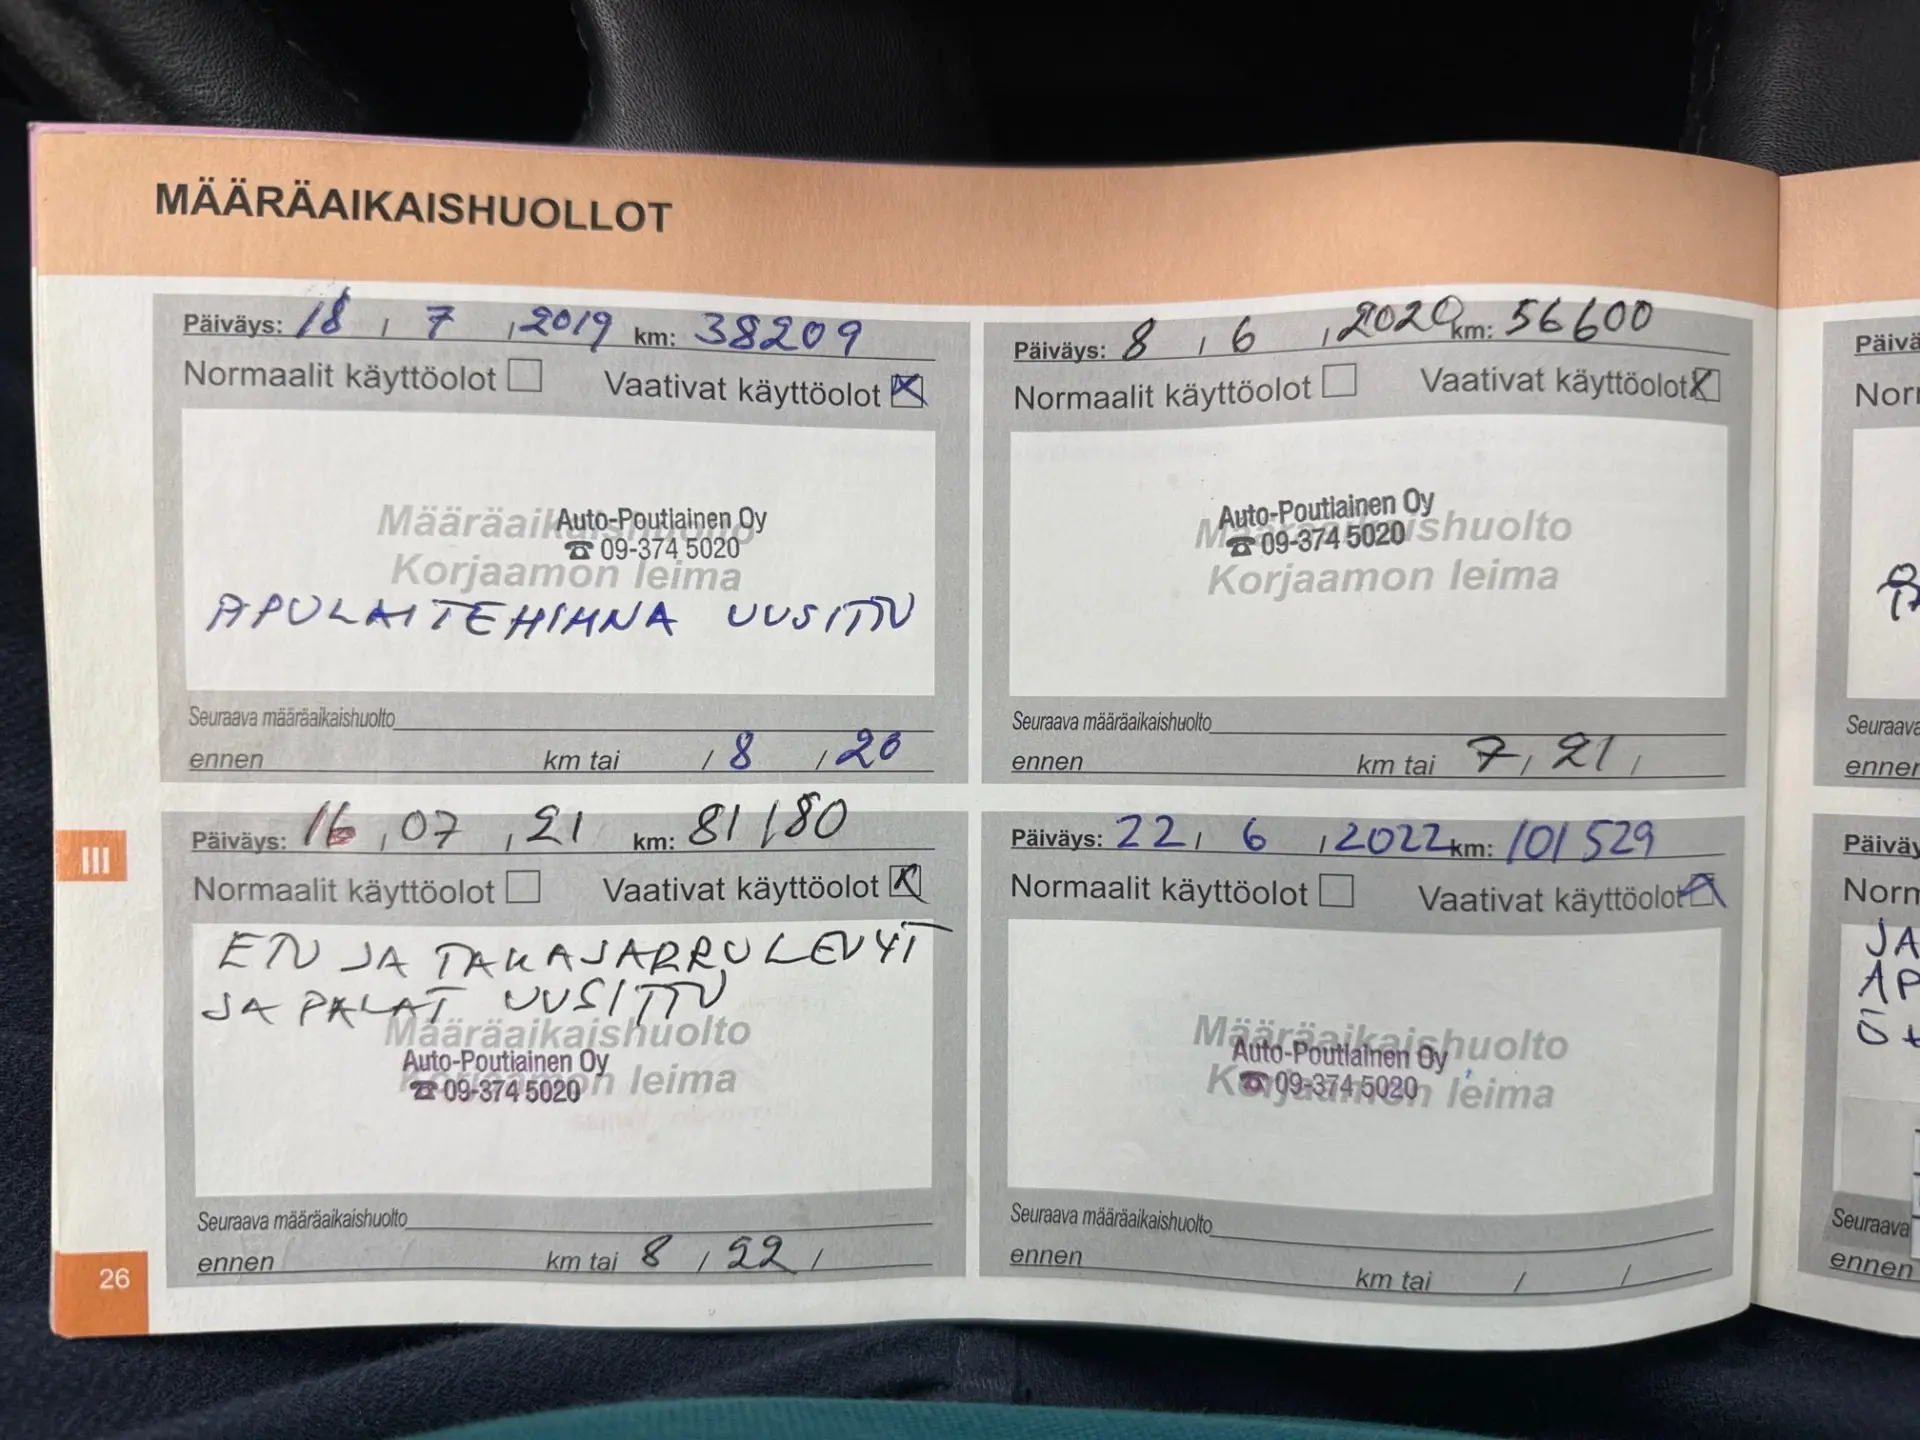 MÄÄRÄAIKAISHUOLLOT
Päiväys: 18 / 7 / 2019 km: 38209
Normaalit käyttöolot Vaativat käyttöolot
Määräaikaishuolto
Auto-Poutiainen Oy
☎ 09-374 5020
Korjaamon leima
APULAITEHIHNA UUSITTU
Seuraava määräaikaishuolto
ennen km tai / 8 / 20
Päiväys: 8 / 6 / 2020 km: 56600
Normaalit käyttöolot Vaativat käyttöolot
Auto-Poutiainen Oy
Määräaikaishuolto
☎ 09-374 5020
Korjaamon leima
Seuraava määräaikaishuolto
ennen km tai 7 / 21 /
Päiväys: 16 / 07 / 21 km: 81180
Normaalit käyttöolot Vaativat käyttöolot
ETU JA TAKAJARRULEVYT
JA PALAT UUSITTU
Määräaikaishuolto
Auto-Poutiainen Oy
Korjaamon leima
☎ 09-374 5020
Seuraava määräaikaishuolto
ennen km tai 8 / 22 /
Päiväys: 22 / 6 / 2022 km: 101529
Normaalit käyttöolot Vaativat käyttöolot
Määräaikaishuolto
Auto-Poutiainen Oy
Korjaamon leima
☎ 09-374 5020
Seuraava määräaikaishuolto
ennen km tai / /
III
26
JA
AP
Seuraava
ennen